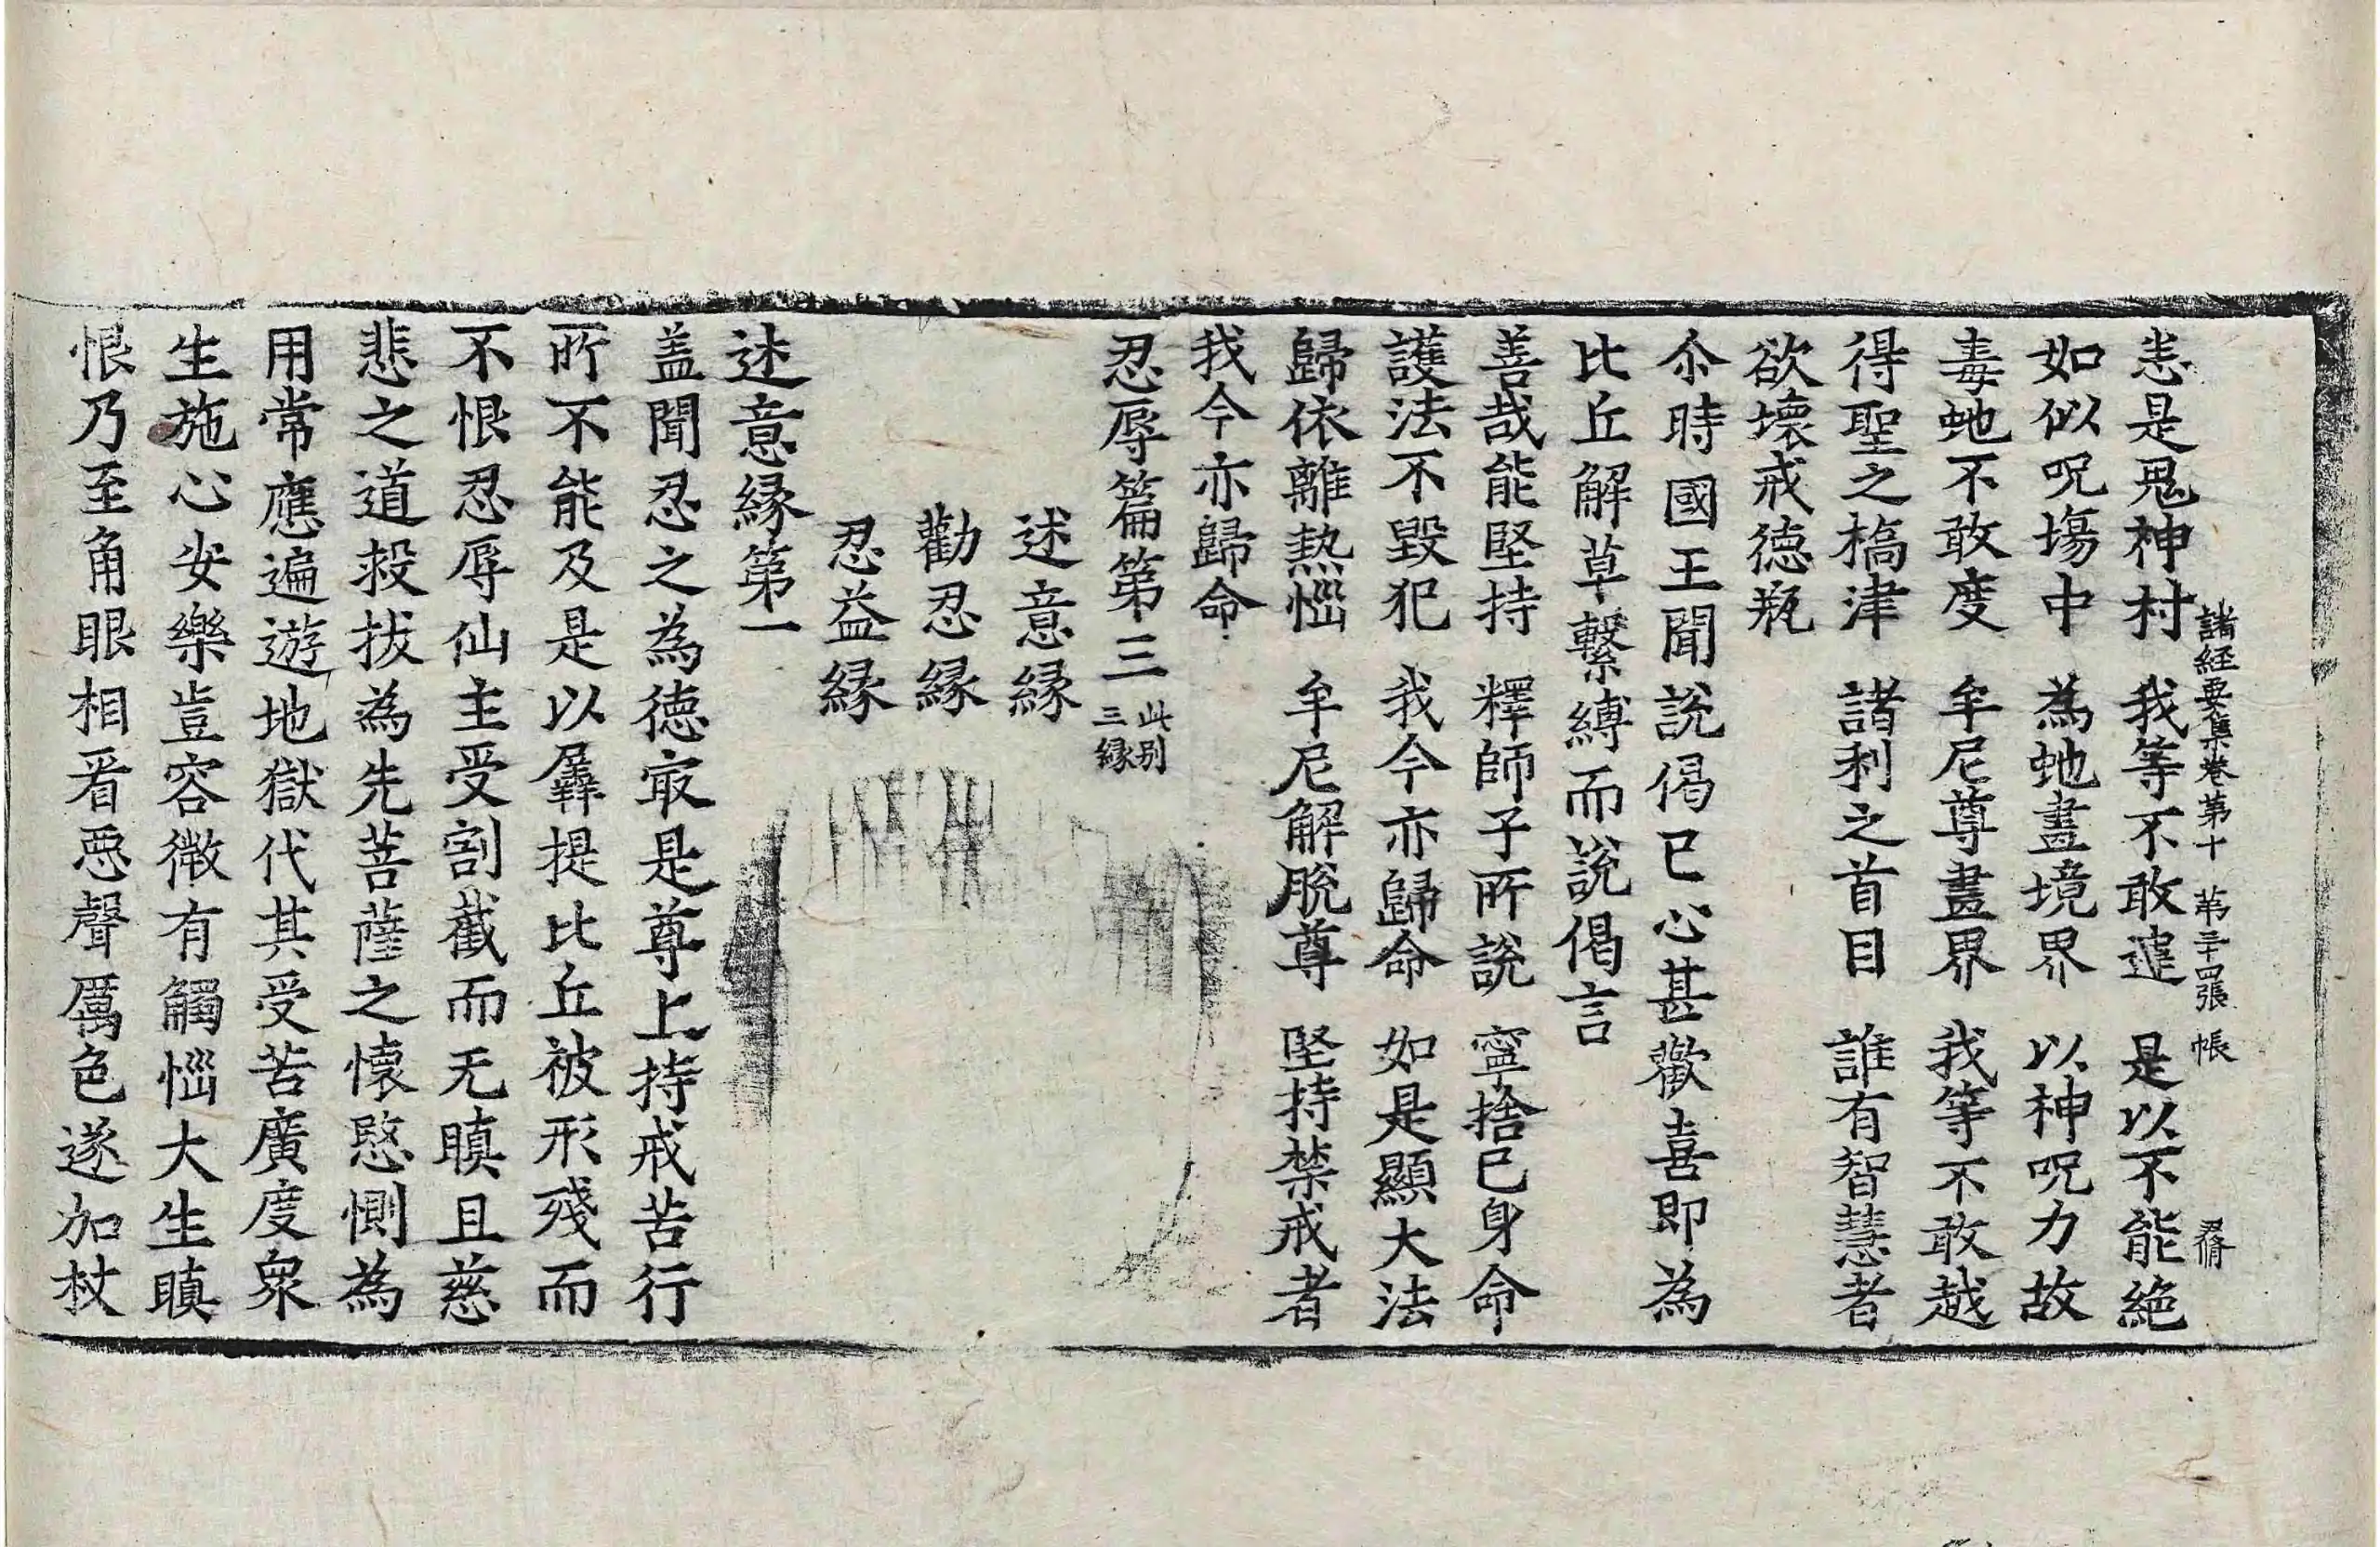 諸経要集卷第十　苐三十四張　帳　君脩
恙是鬼神村　我等不敢違　是以不能絶
如似呪塲中　為虵畫境界　以神呪力故
毒虵不敢度　牟尼尊畫界　我等不敢越
得聖之橋津　諸利之首目　誰有智慧者
欲壊戒徳瓶
尒時國王聞說偈已心甚歡喜即為
比丘解草繫縛而說偈言
善哉能堅持　釋師子所說　寧捨已身命
護法不毀犯　我今亦歸命　如是顯大法
歸依離熱惱　牟尼解脫尊　堅持禁戒者
我今亦歸命
忍辱篇第三 此别三縁
述意縁
勸忍縁
忍益縁
述意縁第一
盖聞忍之為徳㝡是尊上持戒苦行
所不能及是以羼提比丘被形殘而
不恨忍辱仙主受割截而无瞋且慈
悲之道救拔為先菩薩之懷愍惻為
用常應遍遊地獄代其受苦廣度衆
生施心安樂豈容微有觸惱大生瞋
恨乃至角眼相看惡聲厲色遂加杖